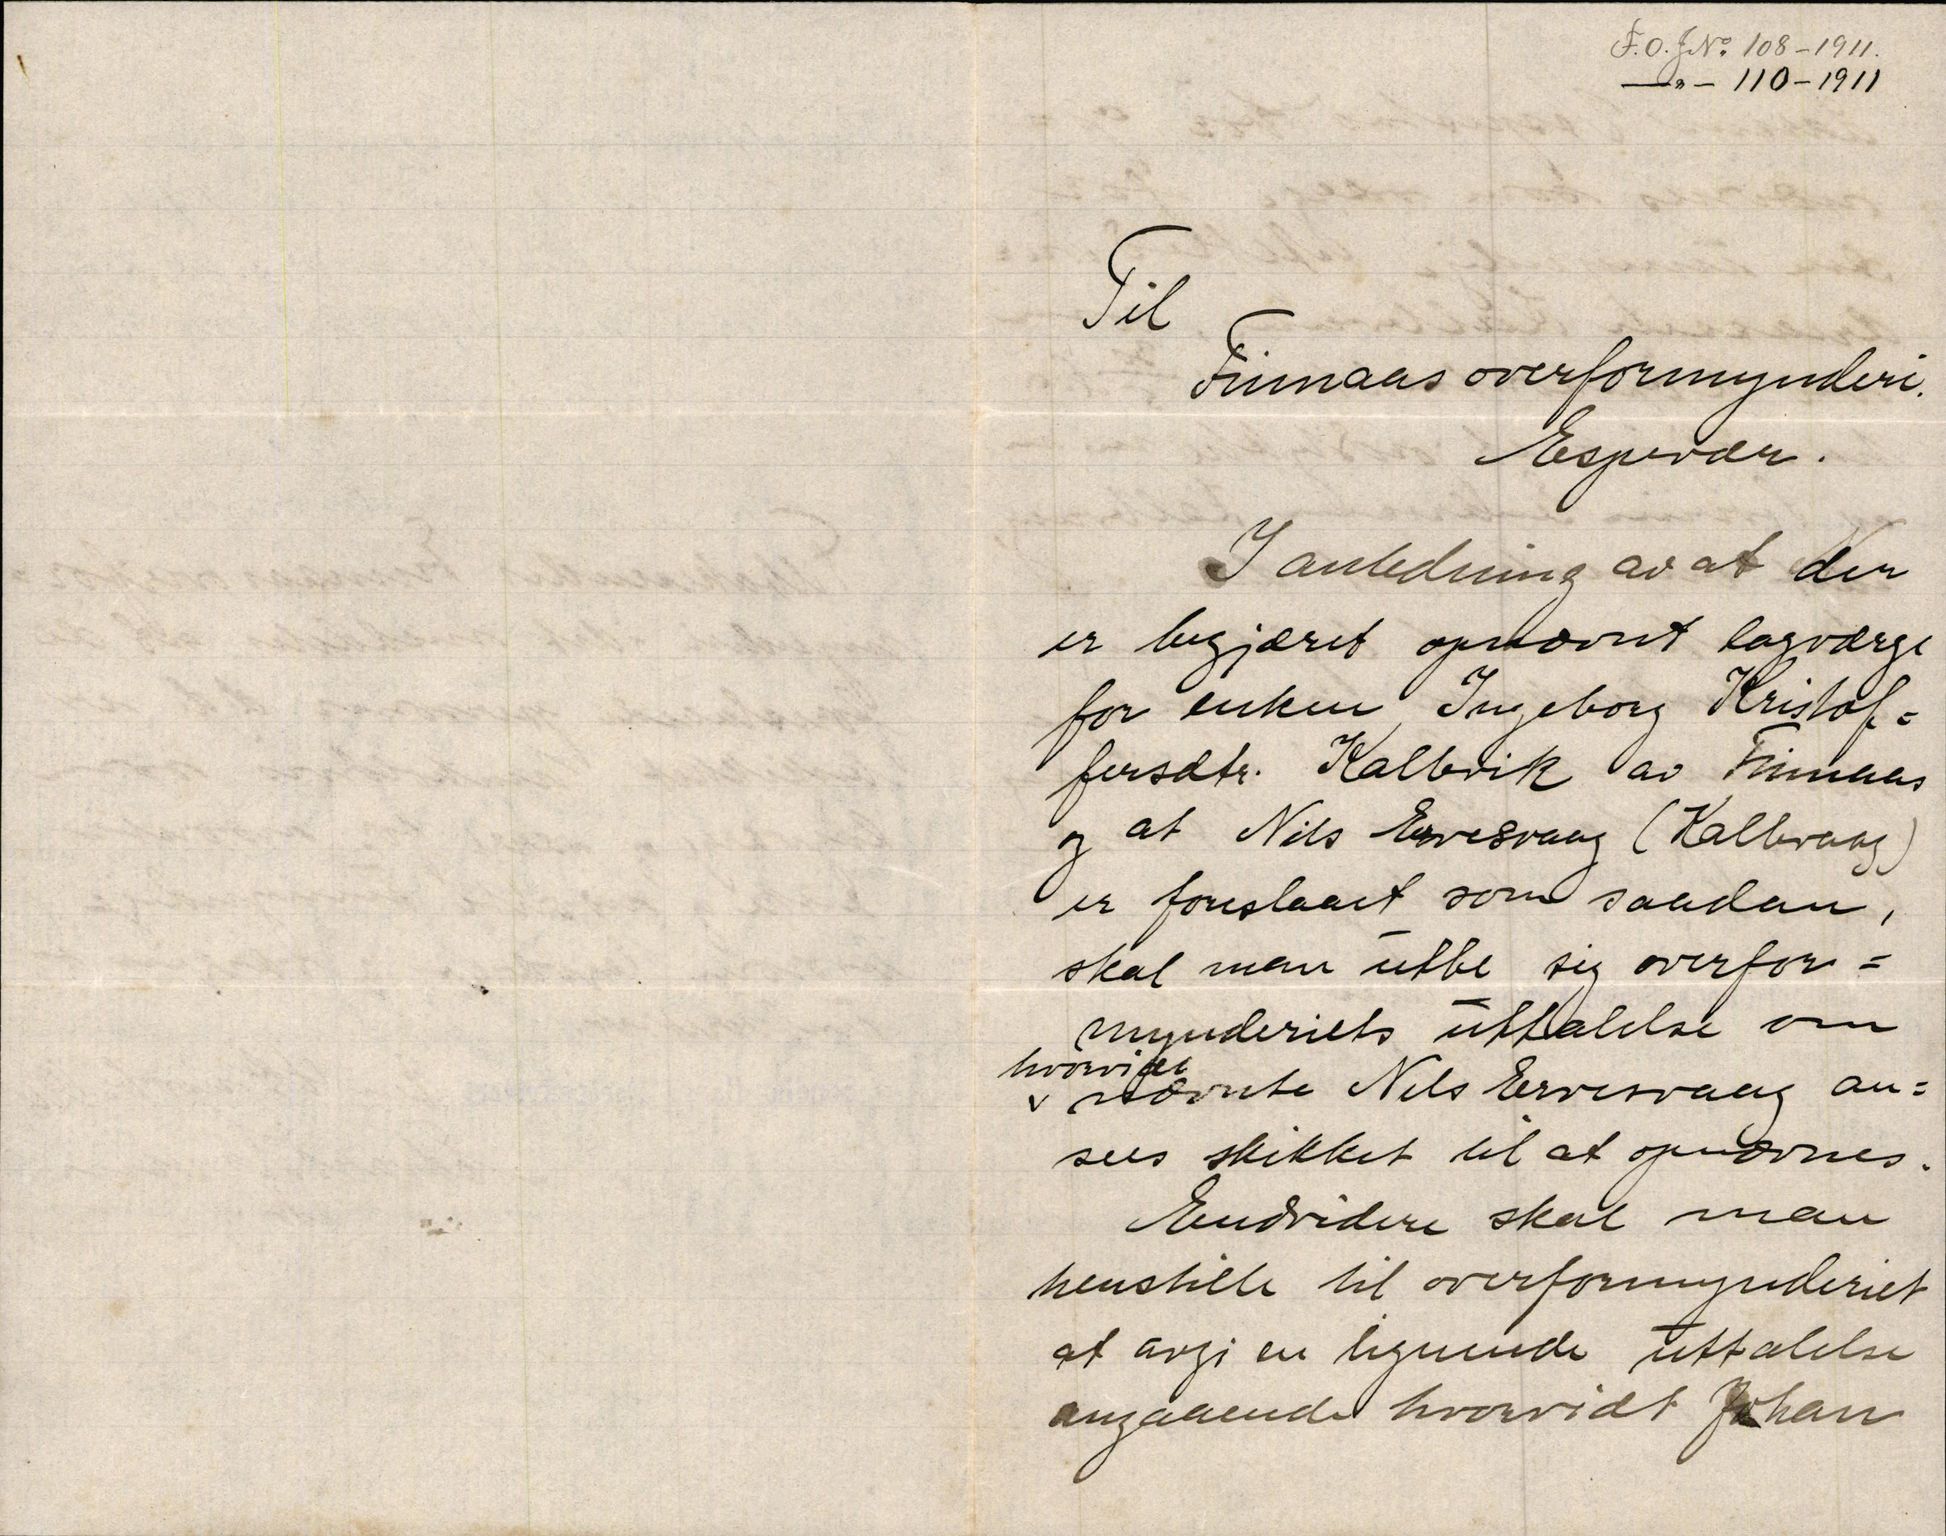 F.O.J.No. 108-1911.
—"— 110-1911
Til
Finnaas overformynderi.
Espevær.
I anledning av at der
er begjæret opnævnt lagværge
for enken Ingeborg Kristof=
fersdtr. Kallevik av Finnaas
og at Nils Ervesvaag (Kallevaag)
er foreslaaet som saadan,
skal man utbe sig overfor=
mynderiets uttalelse om
hvorvidt
v nævnte Nils Ervesvaag an=
sees skikket til at opnævnes.
Endvidere skal man
henstille til overformynderiet
at avgi en lignende uttalelse
angaaende hvorvidt Johan